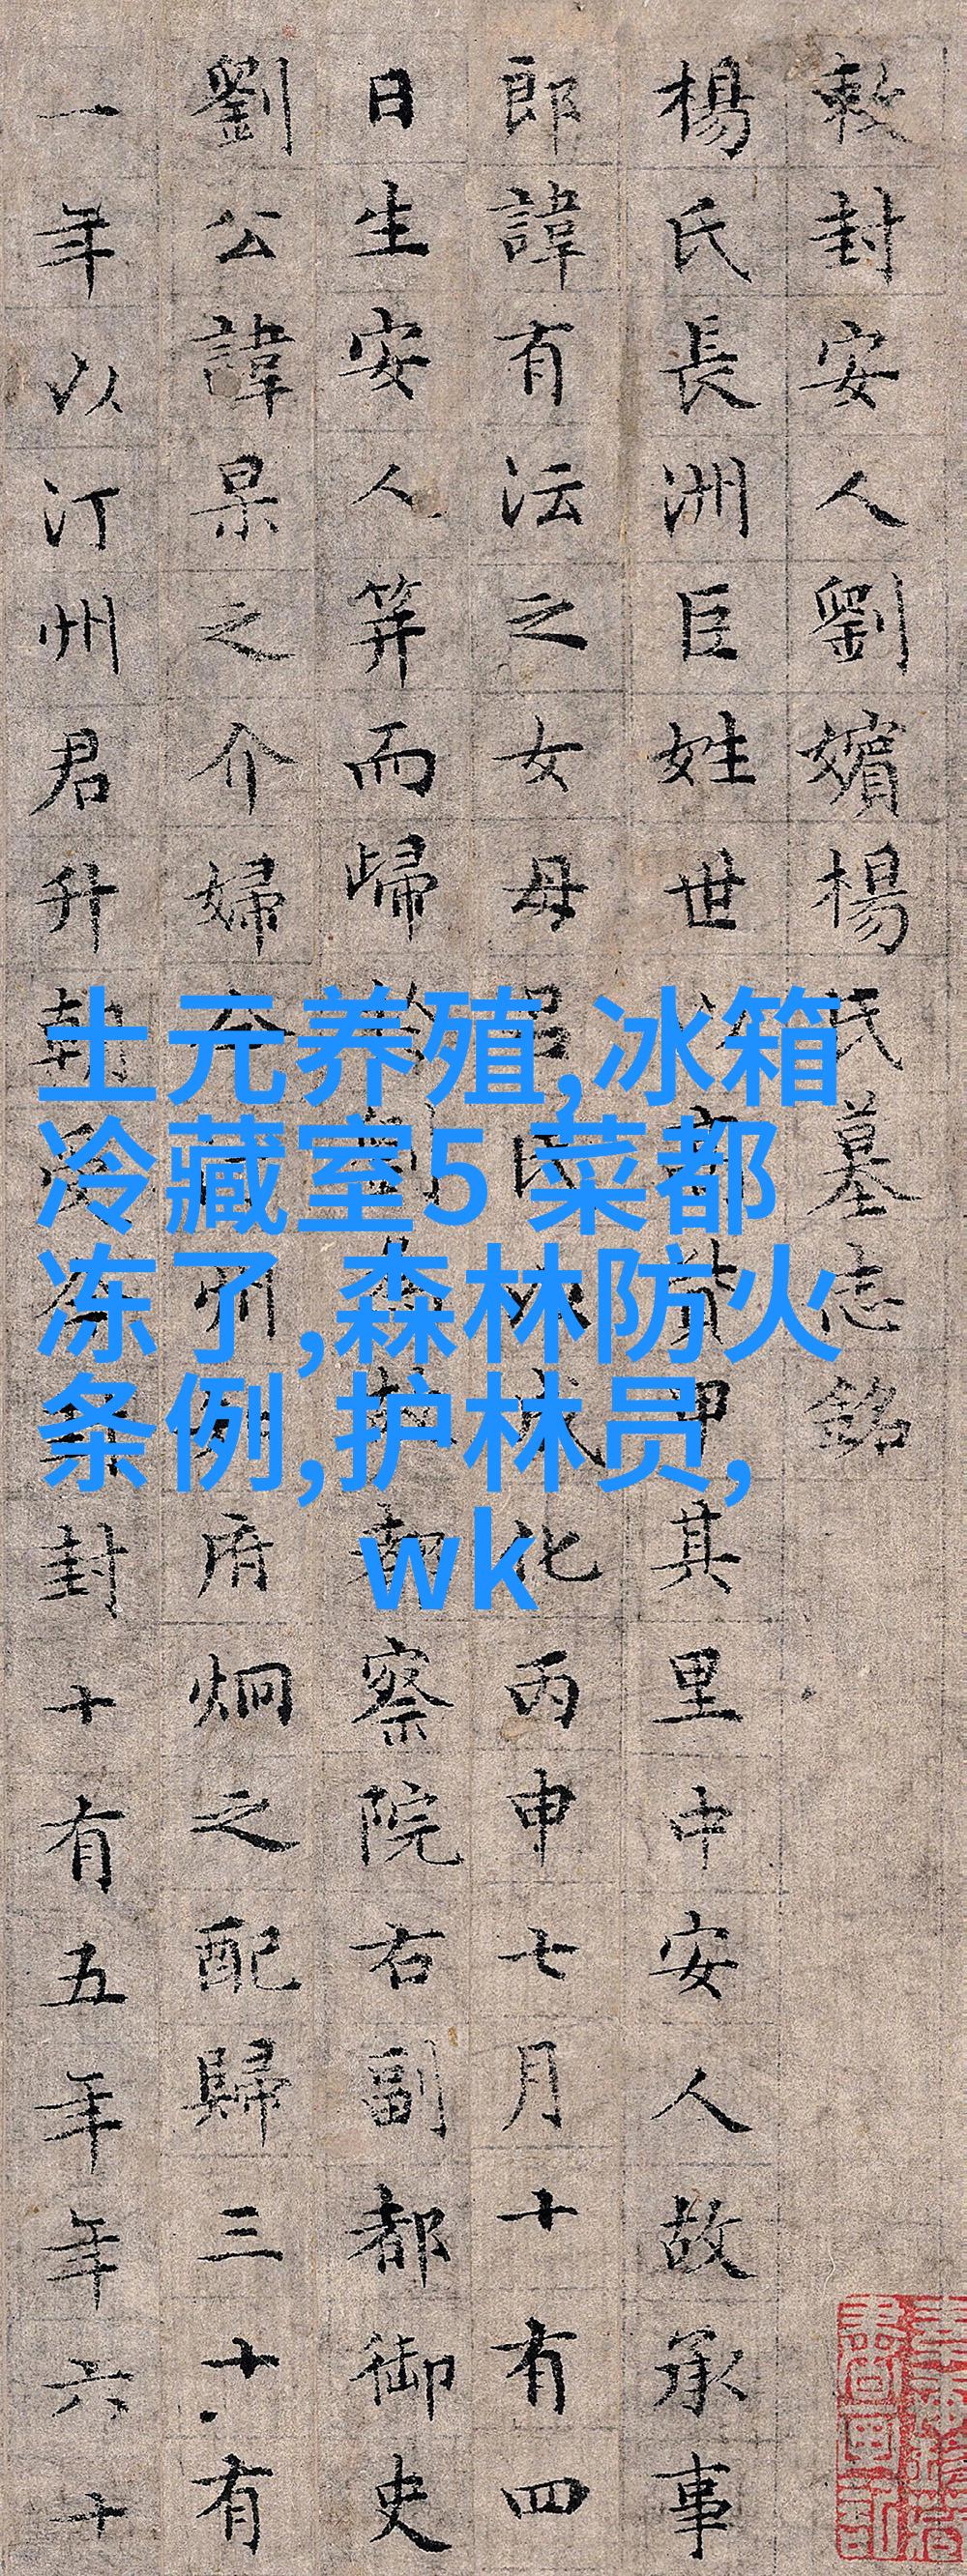 敕封安人劉嬪楊氏墓志銘
楊氏長洲臣姓世以貲甲其里中安人故承事
郎諱有沄之女母呂氏以成化丙申七月十有四
日生安人笄而歸於劉察院右副都御史
劉公諱杲之介婦州府炯之配歸三十有
一年以汀州君升朝受封十有五年年六十
土元养殖,冰箱
冷藏室5 菜都
冻了,森林防火
条例,护林员,
wk